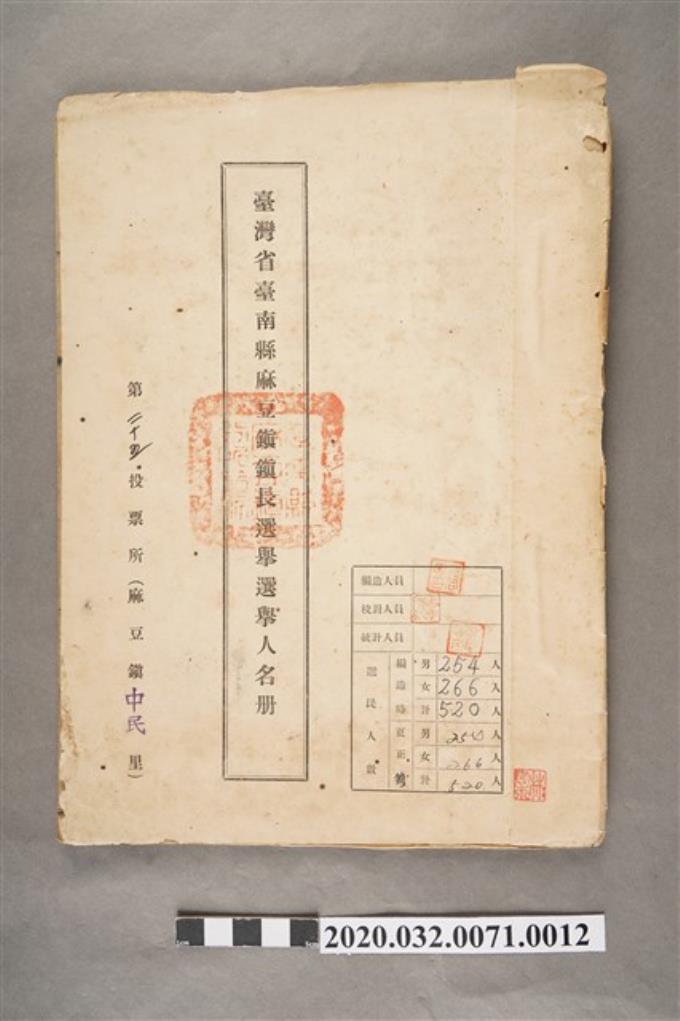 臺灣省臺南縣麻豆鎮鎮長選舉選舉人名册
第二十五投票所(麻豆鎮中民里)
編造人員
校對人員
統計人員
選民人數
編造時
男 254 人
女 266 人
計 520 人
更正後
男 254 人
女 266 人
計 520 人
2020.032.0071.0012